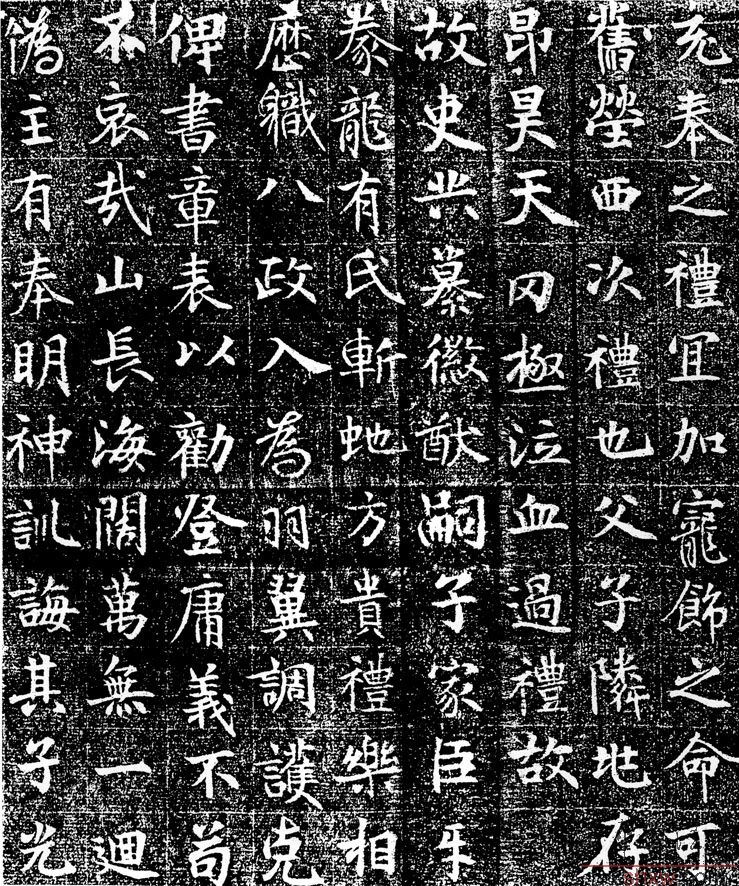 充奉之禮冝加寵飾之命可
舊塋西次禮也父子隣地存
昂昊天冈極泣血過禮故
故吏㳟慕徽猷嗣子家臣牙
豢龍有氏斬虵方貴禮樂相
歷軄八政入為羽翼調護克
俾書章表以勸登庸義不苟
不哀㦲山長海闊萬無一迴
偽主有奉明神訓誨其子光